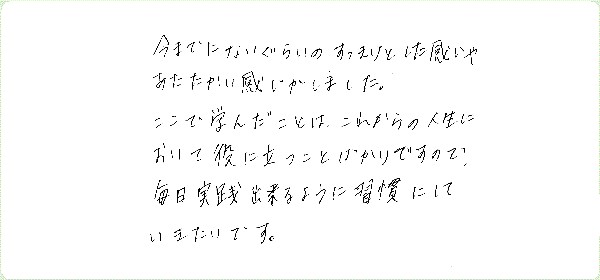 今までにないぐらいのすっきりとした感じや
あたたかい感じがしました。
ここで学んだことは、これからの人生に
おいて役に立つことばかりですので、
毎日実践出来るように習慣にして
いきたいです。